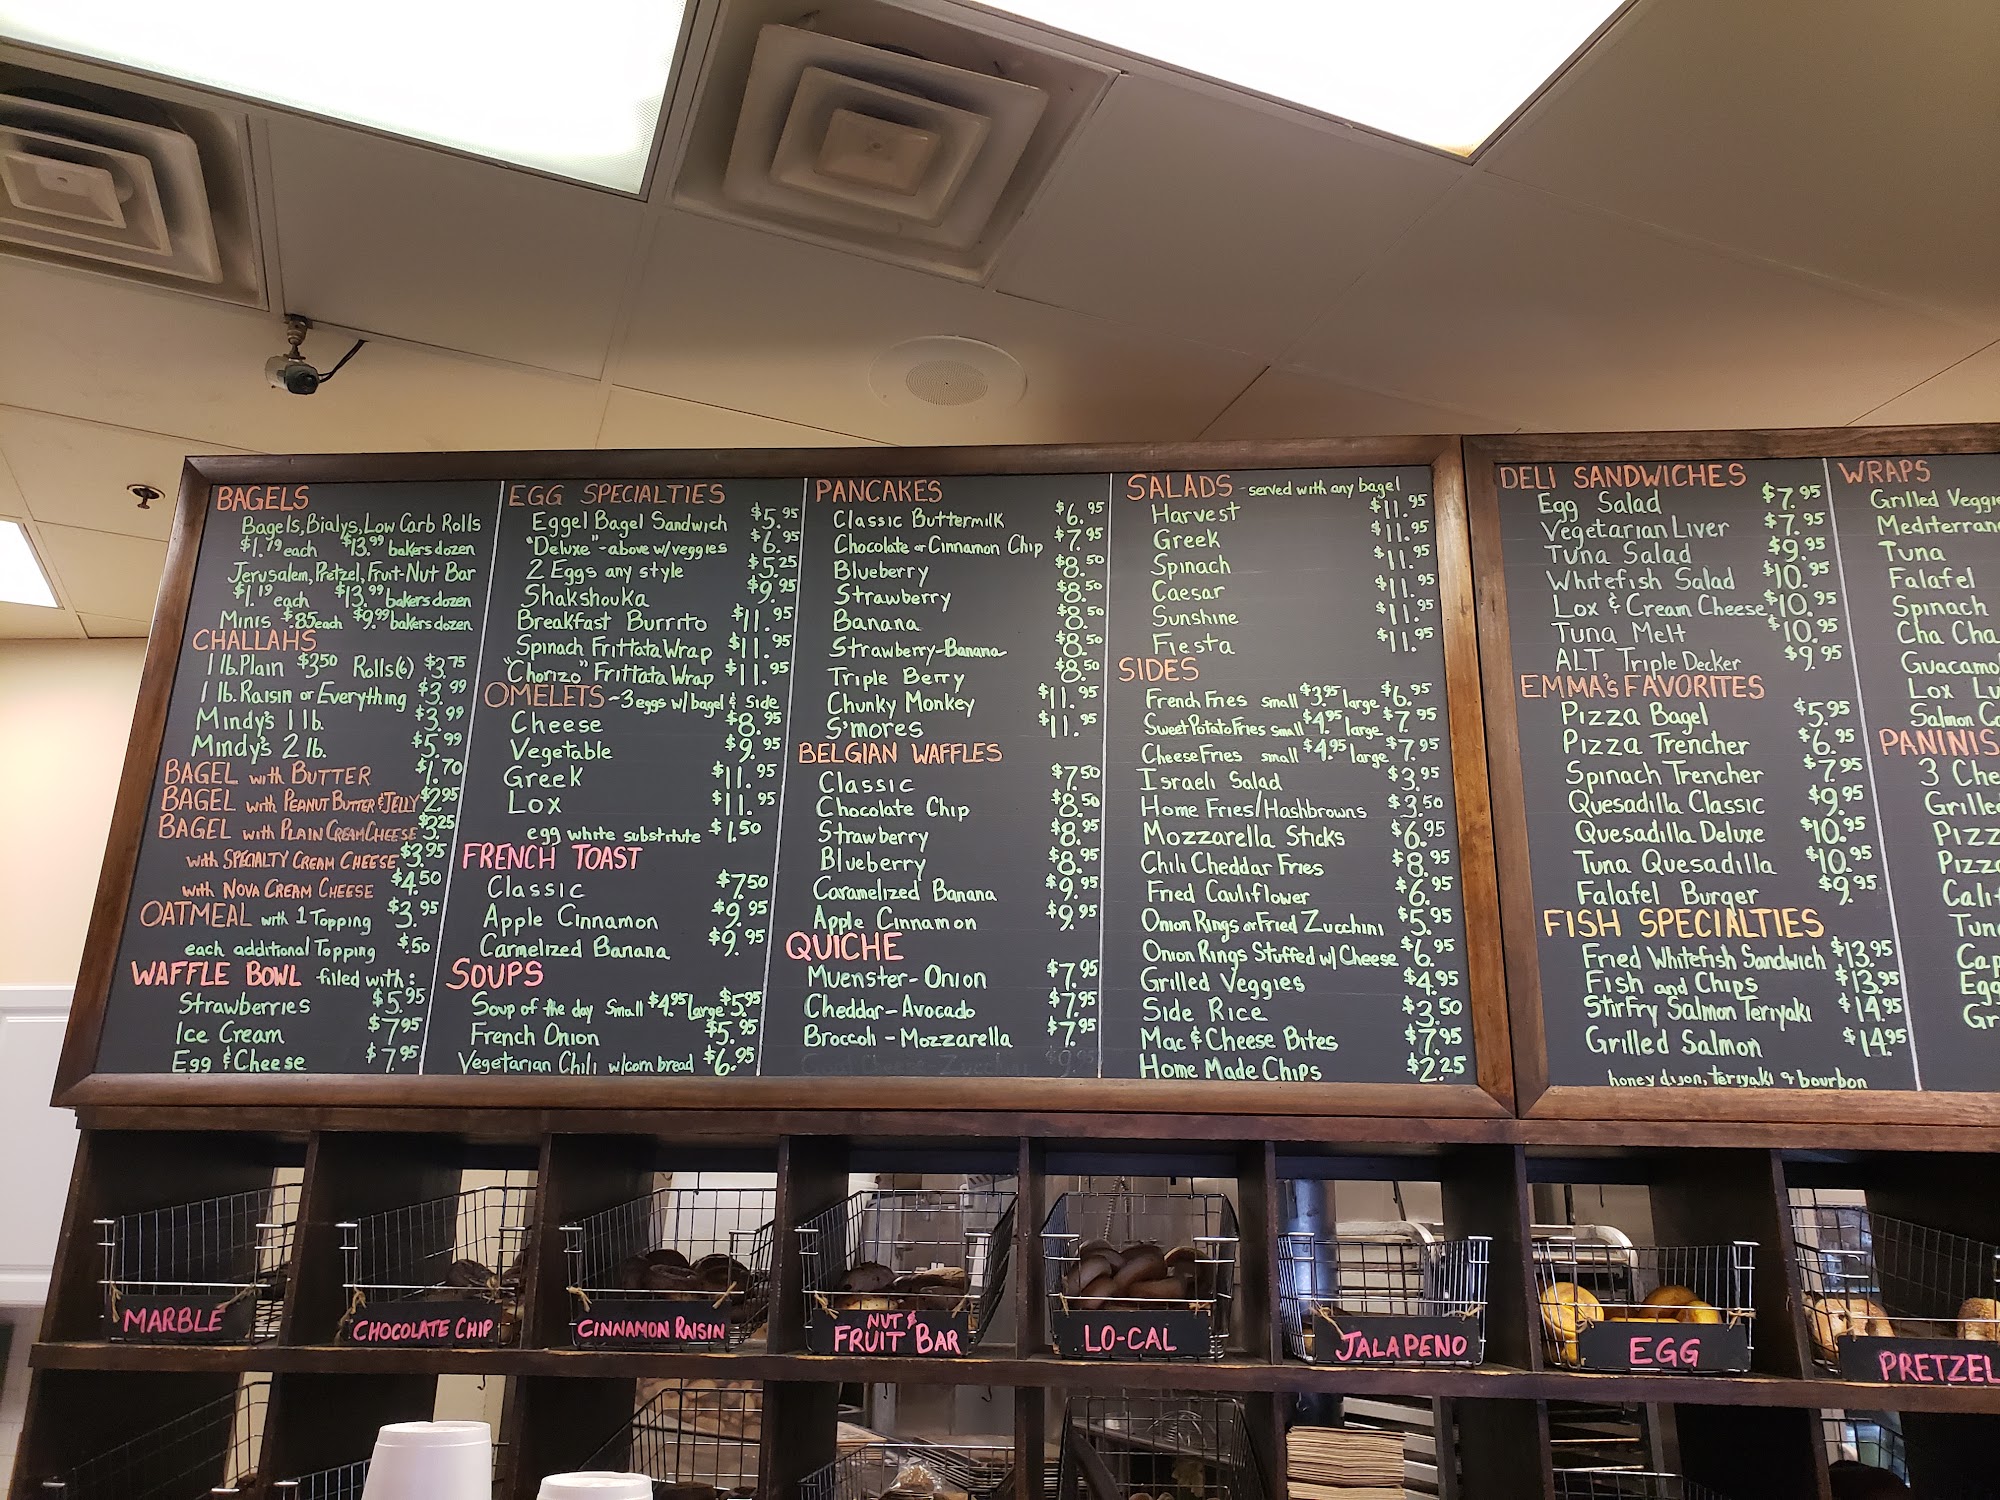 BAGELS
Bagels, Bialys, Low Carb Rolls
$1.19 each $13.99 bakers dozen
Jerusalem, Pretzel, Fruit-Nut Bar
$1.19 each $13.99 bakers dozen
Minis $.85 each $9.99 bakers dozen
CHALLAHS
1 lb. Plain $3.50 Rolls(6) $3.75
1 lb. Raisin or Everything $3.99
Mindy's 1 lb. $3.99
Mindy's 2 lb. $5.99
BAGEL with BUTTER $1.70
BAGEL with PEANUT BUTTER & JELLY $2.95
BAGEL with PLAIN CREAM CHEESE $3.25
with SPECIALTY CREAM CHEESE $3.95
with NOVA CREAM CHEESE $4.50
OATMEAL with 1 Topping $3.95
each additional Topping $.50
WAFFLE BOWL filled with:
Strawberries $5.95
Ice Cream $7.95
Egg & Cheese $7.95
EGG SPECIALTIES
Eggel Bagel Sandwich $5.95
"Deluxe" - above w/veggies $6.95
2 Eggs any style $5.25
Shakshouka $9.95
Breakfast Burrito $11.95
Spinach Frittata Wrap $11.95
"Chorizo" Frittata Wrap $11.95
OMELETS ~ 3 eggs w/ bagel & side
Cheese $8.95
Vegetable $9.95
Greek $11.95
Lox $11.95
egg white substitute $1.50
FRENCH TOAST
Classic $7.50
Apple Cinnamon $9.95
Carmelized Banana $9.95
SOUPS
Soup of the day Small $4.95 Large $5.95
French Onion $5.95
Vegetarian Chili w/corn bread $6.95
PANCAKES
Classic Buttermilk $6.95
Chocolate or Cinnamon Chip $7.95
Blueberry $8.50
Strawberry $8.50
Banana $8.50
Strawberry-Banana $8.50
Triple Berry $8.50
Chunky Monkey $11.95
S'mores $11.95
BELGIAN WAFFLES
Classic $7.50
Chocolate Chip $8.50
Strawberry $8.95
Blueberry $8.95
Caramelized Banana $9.95
Apple Cinnamon $9.95
QUICHE
Muenster-Onion $7.95
Cheddar-Avocado $7.95
Broccoli-Mozzarella $7.95
SALADS - served with any bagel
Harvest $11.95
Greek $11.95
Spinach $11.95
Caesar $11.95
Sunshine $11.95
Fiesta $11.95
SIDES
French Fries small $3.95 large $6.95
Sweet Potato Fries small $4.95 large $7.95
Cheese Fries small $4.95 large $7.95
Israeli Salad $3.95
Home Fries/Hashbrowns $3.50
Mozzarella Sticks $6.95
Chili Cheddar Fries $8.95
Fried Cauliflower $6.95
Onion Rings or Fried Zucchini $5.95
Onion Rings Stuffed w/ Cheese $6.95
Grilled Veggies $4.95
Side Rice $3.50
Mac & Cheese Bites $7.95
Home Made Chips $2.25
DELI SANDWICHES
Egg Salad $7.95
Vegetarian Liver $7.95
Tuna Salad $9.95
Whitefish Salad $10.95
Lox & Cream Cheese $10.95
Tuna Melt $10.95
ALT Triple Decker $9.95
EMMA'S FAVORITES
Pizza Bagel $5.95
Pizza Trencher $6.95
Spinach Trencher $7.95
Quesadilla Classic $9.95
Quesadilla Deluxe $10.95
Tuna Quesadilla $10.95
Falafel Burger $9.95
FISH SPECIALTIES
Fried Whitefish Sandwich $13.95
Fish and Chips $13.95
Stirfry Salmon Teriyaki $14.95
Grilled Salmon $14.95
honey dijon, teriyaki & bourbon
WRAPS
Grilled Veggie
Mediterran
Tuna
Falafel
Spinach
Cha Cha
Guacamol
Lox Lu
Salmon Ca
PANINIS
3 Che
Grille
Pizz
Pizza
Calif
Tuna
Cap
Egg
Gr
MARBLE
CHOCOLATE CHIP
CINNAMON RAISIN
NUT &
FRUIT BAR
LO-CAL
JALAPENO
EGG
PRETZEL